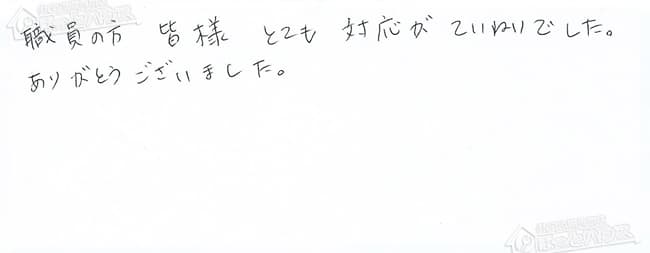 職員の方 皆様 とても 対応が ていねいでした。
ありがとうございました。